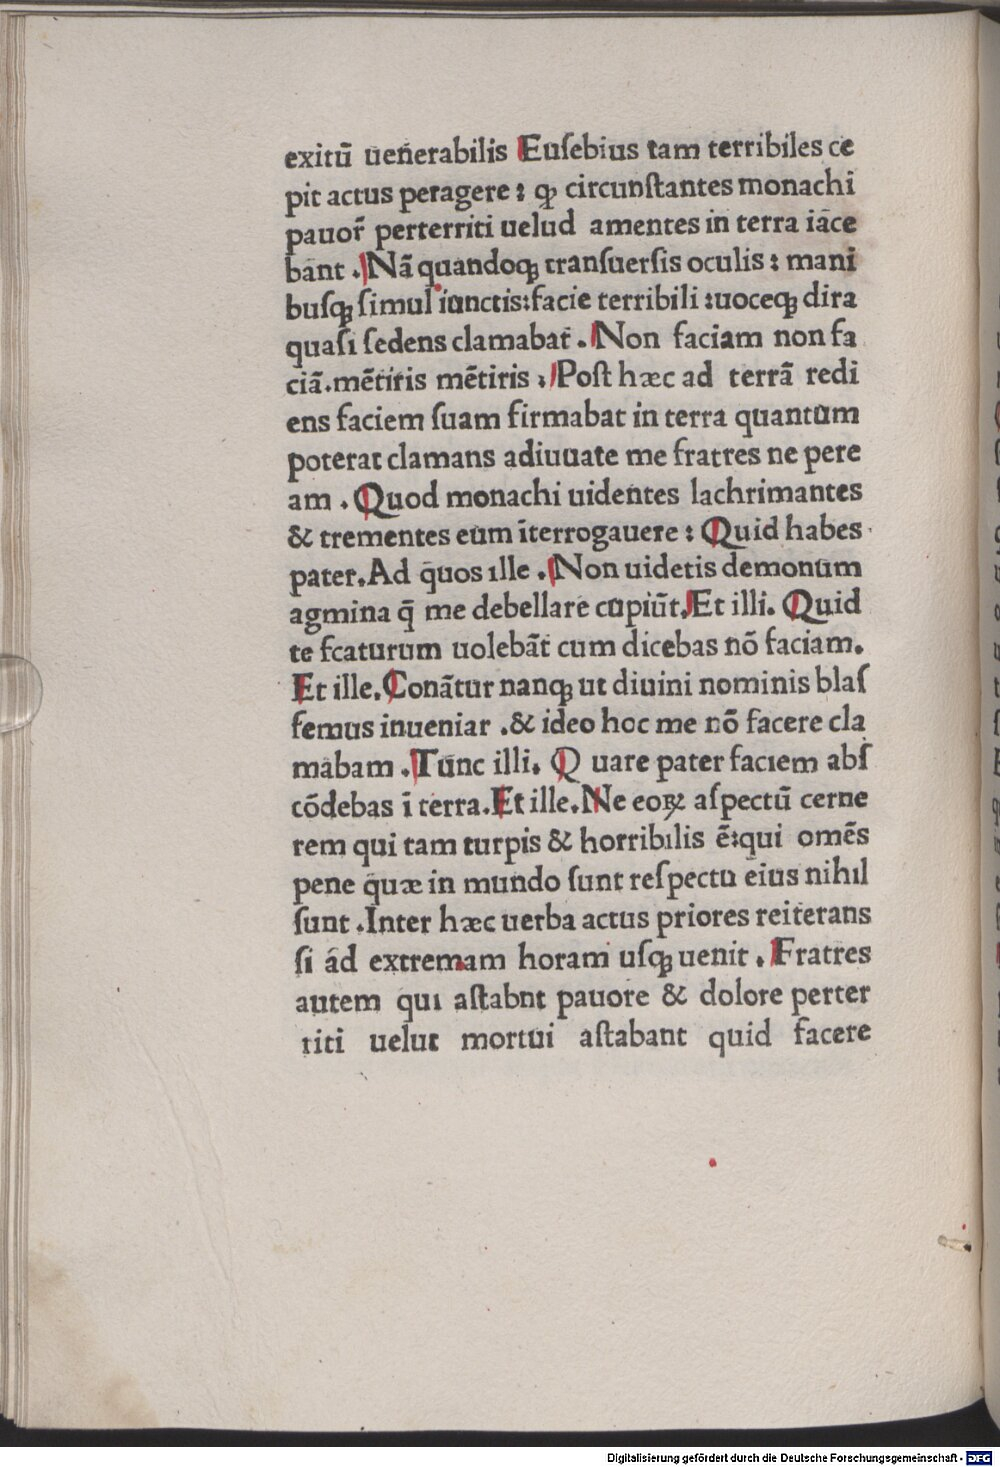 exitū uenerabilis Euſebius tam terribiles ce
pit actus peragere : ꝙ circunſtantes monachi
pauor̄ perterriti uelud amentes in terra iace
bant . Nā quandoqꝫ tranſuerſis oculis : mani
buſqꝫ ſimul iunctis:facie terribili :uoceqꝫ dira
quaſi ſedens clamabat . Non faciam non fa
ciā.mētiris mētiris : Poſt hæc ad terrā redi
ens faciem ſuam firmabat in terra quantum
poterat clamans adiuuate me fratres ne pere
am . Quod monachi uidentes lachrimantes
& trementes eum īterrogauere : Quid habes
pater.Ad quos ille . Non uidetis demonum
agmina q̄ me debellare cupiūt.Et illi. Quid
te fcaturum uolebāt cum dicebas nō faciam.
Et ille.Conātur nanqꝫ ut diuini nominis blaſ
femus inueniar .& ideo hoc me nō facere cla
mabam .Tunc illi. Q uare pater faciem abſ
cōdebas ī terra.Et ille.Ne eoꝝ aſpectū cerne
rem qui tam turpis & horribilis ē:qui omēs
pene quæ in mundo ſunt reſpectu eius nihil
ſunt .Inter hæc uerba actus priores reiterans
ſi ad extremam horam uſqꝫ uenit . Fratres
autem qui aſtabnt pauore & dolore perter
riti uelut mortui aſtabant quid facere
Digitalisierung gefördert durch die Deutsche Forschungsgemeinschaft - DFG